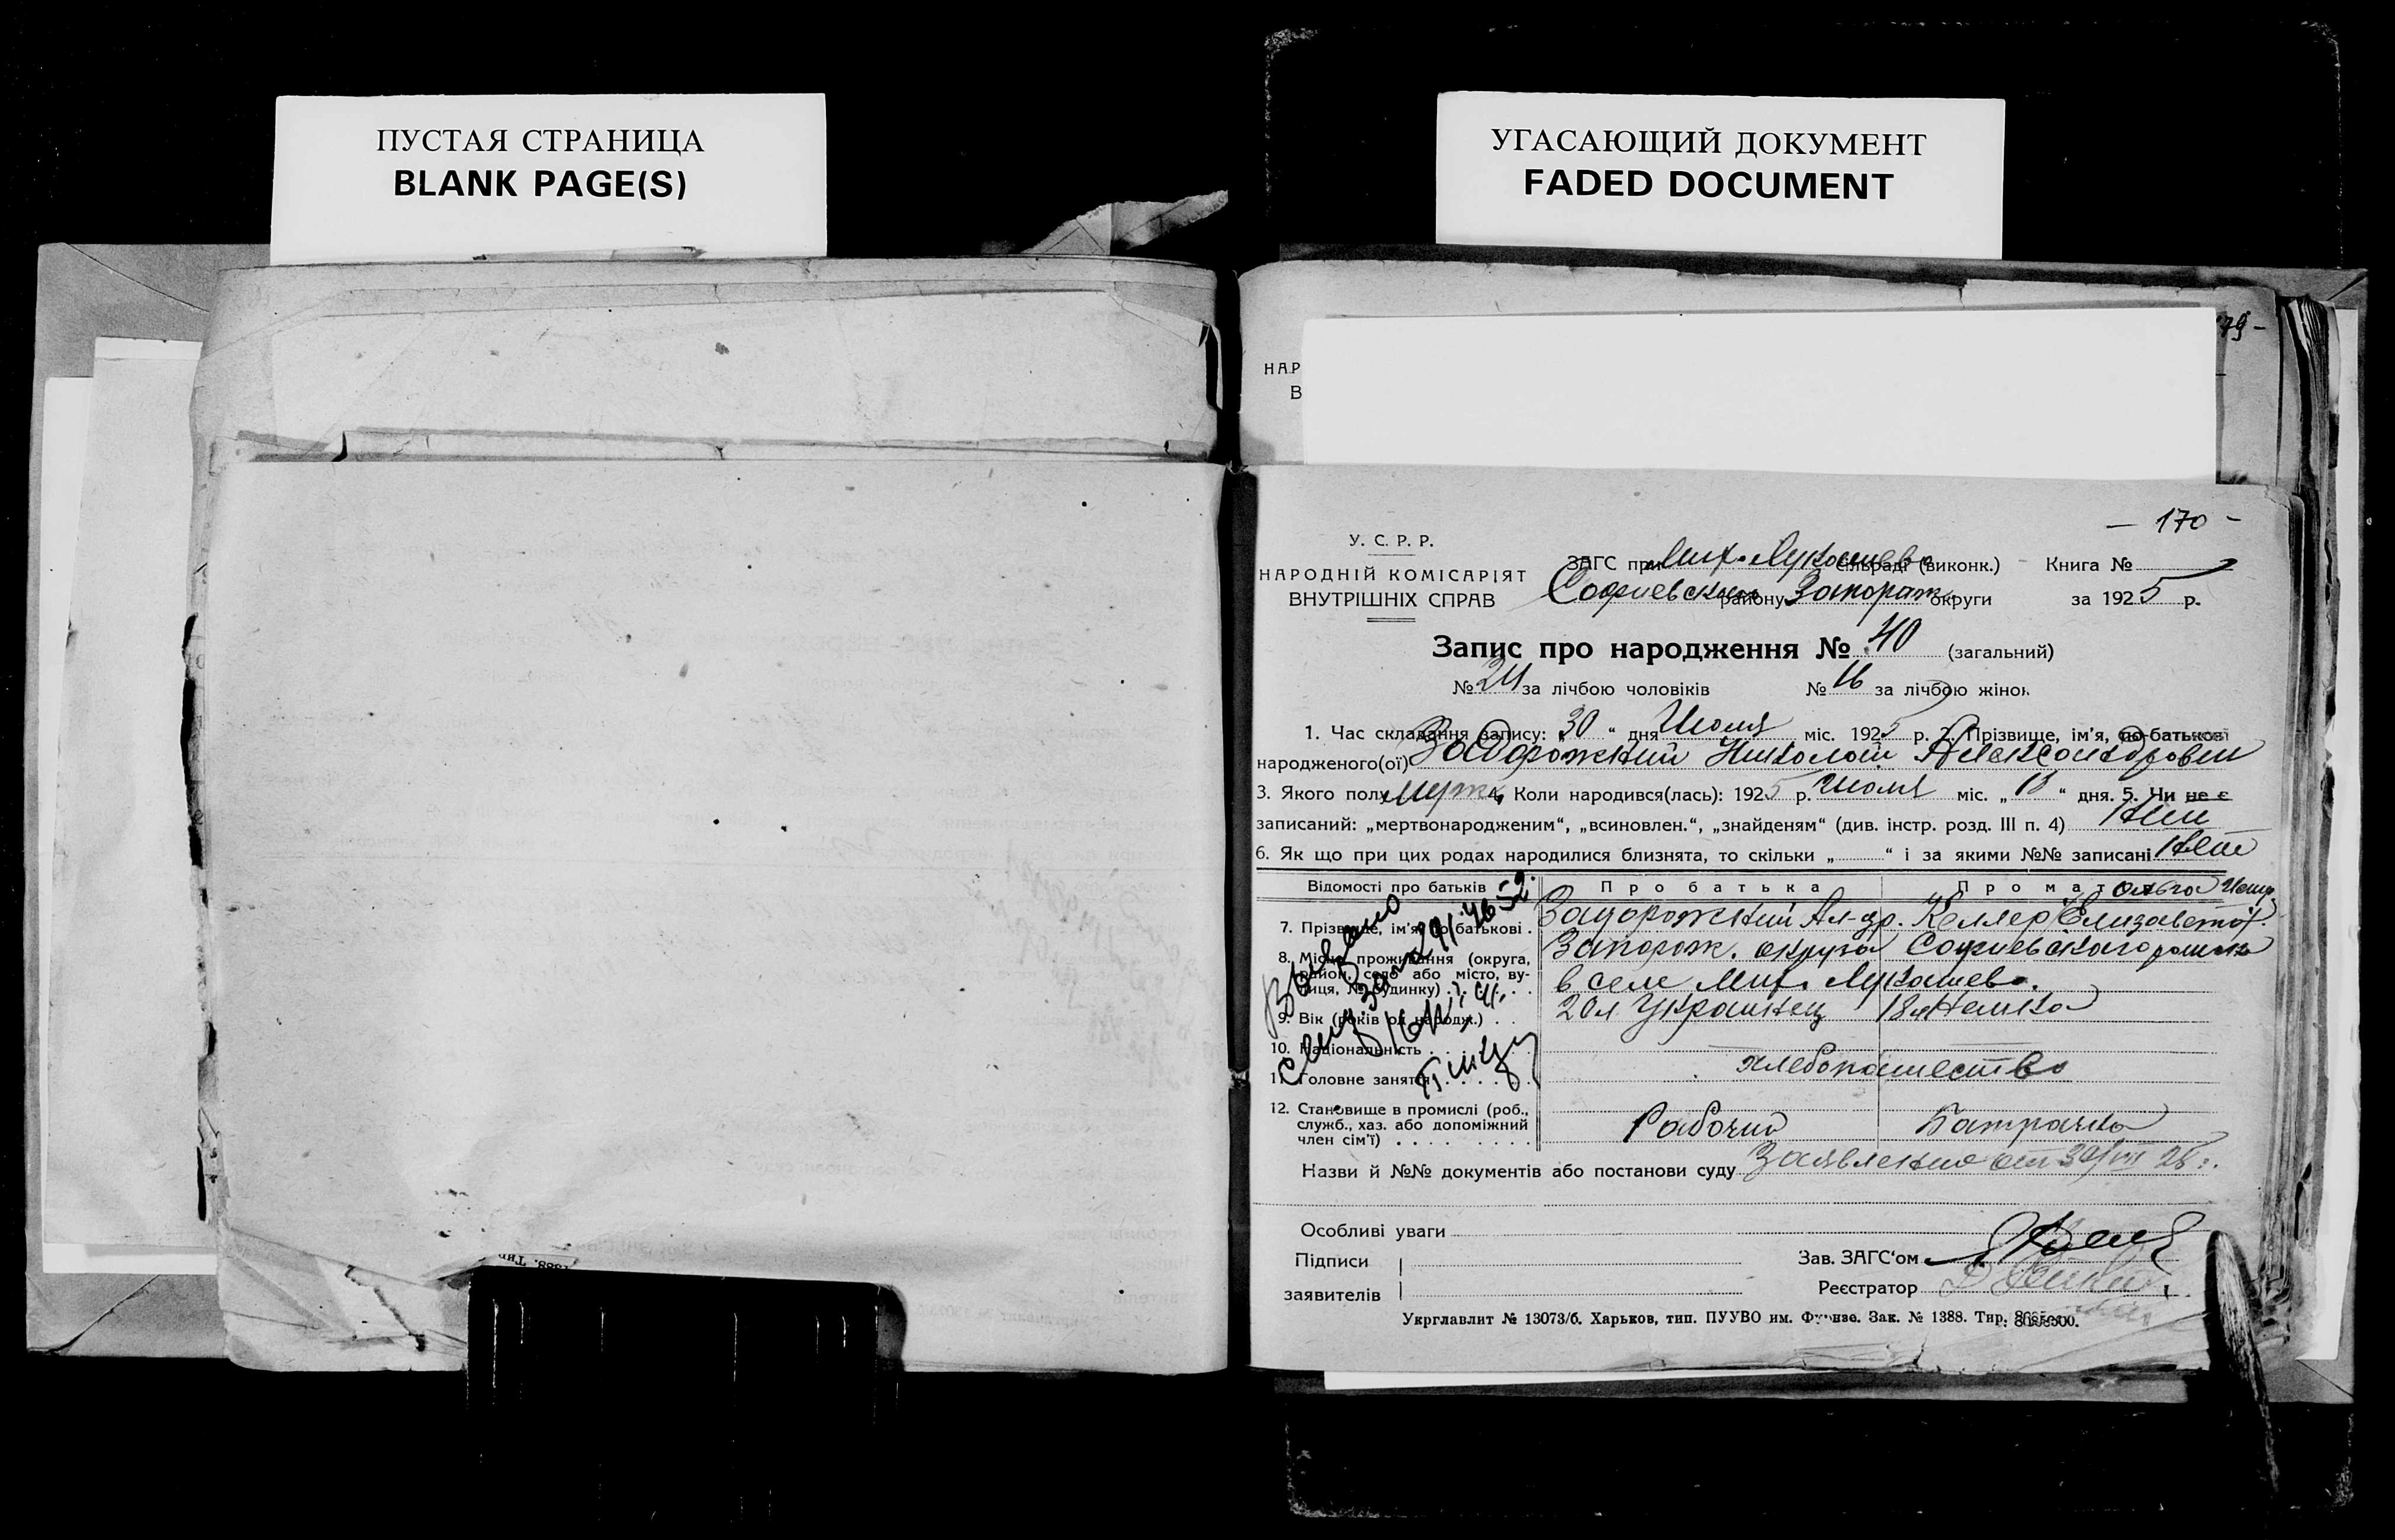 ПУСТАЯ СТРАНИЦА
BLANK PAGE(S)
УГАСАЮЩИЙ ДОКУМЕНТ
FADED DOCUMENT
79 -
НАР
В
— 170 -
У. С. Р. Р.
НАРОДНІЙ КОМІСАРІЯТ
ВНУТРІШНІХ СПРАВ
ЗАГС при Мих-Лукашев. сільраді (виконк.) Книга №
Софиевском району Запорож. округи за 1925 р.
Запис про народження № 40 (загальний)
№ 24 за лічбою чоловіків № 16 за лічбою жінок
1. Час складання запису: „30“ дня Июля міс. 1925 р. 2. Прізвище, ім'я, по-батькові
народженого(ої) Задорожний Николай Александрович
3. Якого полу мужс. 4. Коли народився(лась): 1925 р. Июля міс. „18“ дня. 5. Чи не є
записаний: „мертвонародженим“, „всиновлен.“, „знайденям“ (див. інстр. розд. III п. 4) Нет
6. Як що при цих родах народилися близнята, то скільки „ “ і за якими №№ записані Нет
Відомості про батьків
Про батька
Про матір
Ольга
7. Прізвище, ім'я, по батькові . Задорожний Ал-др. Келлер Елизавета
8. Місце проживання (округа, район, село або місто, вулиця, № будинку) Запорож. округа Софиевского района
в селе Мих. Лукашево.
9. Вік (років од народж.) . . 20 л Украинец 18 л Немка
10. Національність
11. Головне заняття хлебопашество
12. Становище в промислі (роб.,
служб., хаз. або допоміжний
член сім'ї) Рабочий Батрачка
Назви й №№ документів або постанови суду Заявление от 30/VII 25 г.
Особливі уваги
Підписи
заявителів
Зав. ЗАГС'ом
Реєстратор
Укрглавлит № 13073/б. Харьков, тип. ПУУВО им. Фрунзе. Зак. № 1388. Тир.